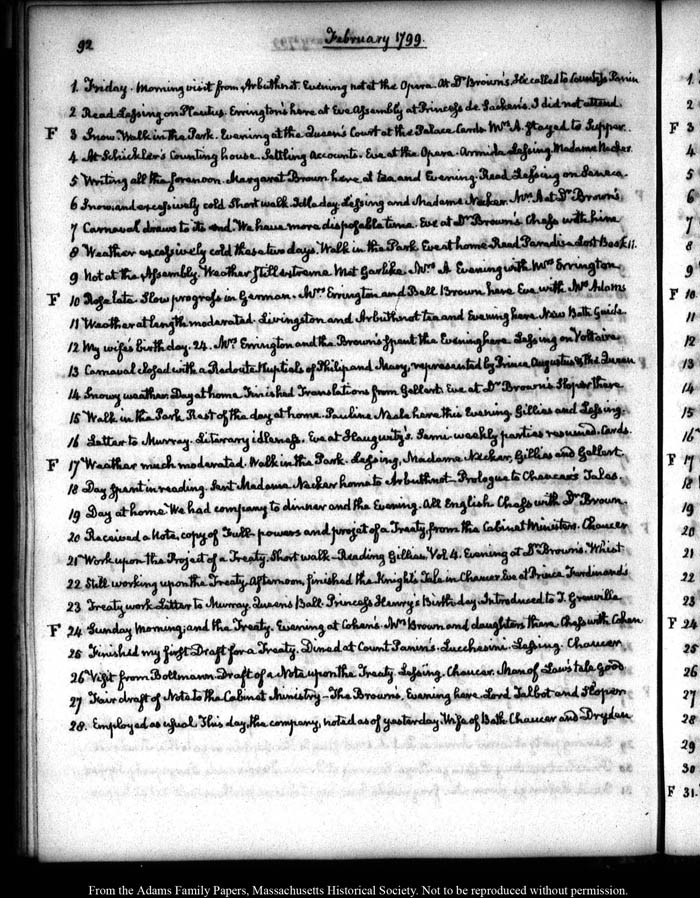 92
February 1799.
1. Friday. Morning visit from Arbuthnot. Evening not at the Opera. At Dr Brown's. He called to Countess Panin
2 Read Lessing on Plautus. Errington's here at Eve Assembly at Princess de Sacken's. I did not attend.
F 3 Snow. Walk in the Park. Evening at the Queen's Court at the Palace. Cards. Mrs A. stayed to Supper.
4. At Schickler's Counting house. Settling Accounts. Eve at the Opera. Armida. Lessing. Madame Necker.
5 Writing all the forenoon. Margaret Brown here at tea and Evening. Read Lessing on Seneca.
6 Snow and excessively cold. Short walk. Idle day. Lessing and Madame Necker. Mrs A at Dr Brown's
7 Carnaval draws to its end. We have more disposable time. Eve at Dr Brown's Chess with him
8 Weather excessively cold these two days. Walk in the Park. Eve at home. Read Paradise Lost Book 11.
9 Not at the Assembly. Weather still extreme. Met Garlike. Mrs A Evening with Mrs Errington
F 10 Rose late. Slow progress in German. Mrs Errington and Bell Brown here Eve with Mrs Adams
11 Weather at length moderated. Livingston and Arbuthnot tea and Evening here. New Bath Guide
12 My wife's birth day. 24. Mrs Errington and the Brown's spent the Evening here. Lessing on Voltaire
13 Carnaval closed with a Redoute. Nuptials of Philip and Mary, represented by Prince Augustus & the Queen
14 Snowy weather. Day at home. Finished Translations from Gellert. Eve at Dr Brown's. Sloper there
15 Walk in the Park. Rest of the day at home. Pauline Neale here this Evening. Gillies and Lessing.
16 Letter to Murray. Literary idleness. Eve at Haugwitz's. Same weekly parties resumed. Cards.
F 17 Weather much moderated. Walk in the Park. Lessing, Madame Necker, Gillies and Gellert.
18 Day spent in reading. Sent Madame Necker home to Arbuthnot. Prologue to Chaucer's Tales.
19 Day at home. We had company to dinner and the Evening. All English. Chess with Dr Brown.
20 Received a Note, copy of Full-powers and projet of a Treaty, from the Cabinet Ministers. Chaucer
21 Work upon the Projet of a Treaty. Short walk—Reading Gillies. Vol 4. Evening at Dr Brown's. Whist
22 Still working upon the Treaty. Afternoon, finished the Knight's Tale in Chaucer. Eve at Prince Ferdinand's
23 Treaty work. Letter to Murray. Queens Ball. Princess Henry's Birth-day. Introduced to T. Grenville
F 24 Sunday Morning; and the Treaty. Evening at Cohen's. Mrs Brown and daughters there. Chess with Cohen
25 Finished my first Draft for a Treaty. Dined at Count Panin's. Lucchesini. Lessing. Chaucer.
26 Visit from Bollmann. Draft of a Note upon the Treaty. Lessing. Chaucer. Man of Law's tale. Good
27 Fair draft of Note to the Cabinet Ministry—The Brown's, Evening here. Lord Talbot and Sloper
28. Employed as usual. This day, the company, noted as of yesterday. Wife of Bath. Chaucer and Dryden
29
30
F 31.
From the Adams Family Papers, Massachusetts Historical Society. Not to be reproduced without permission.